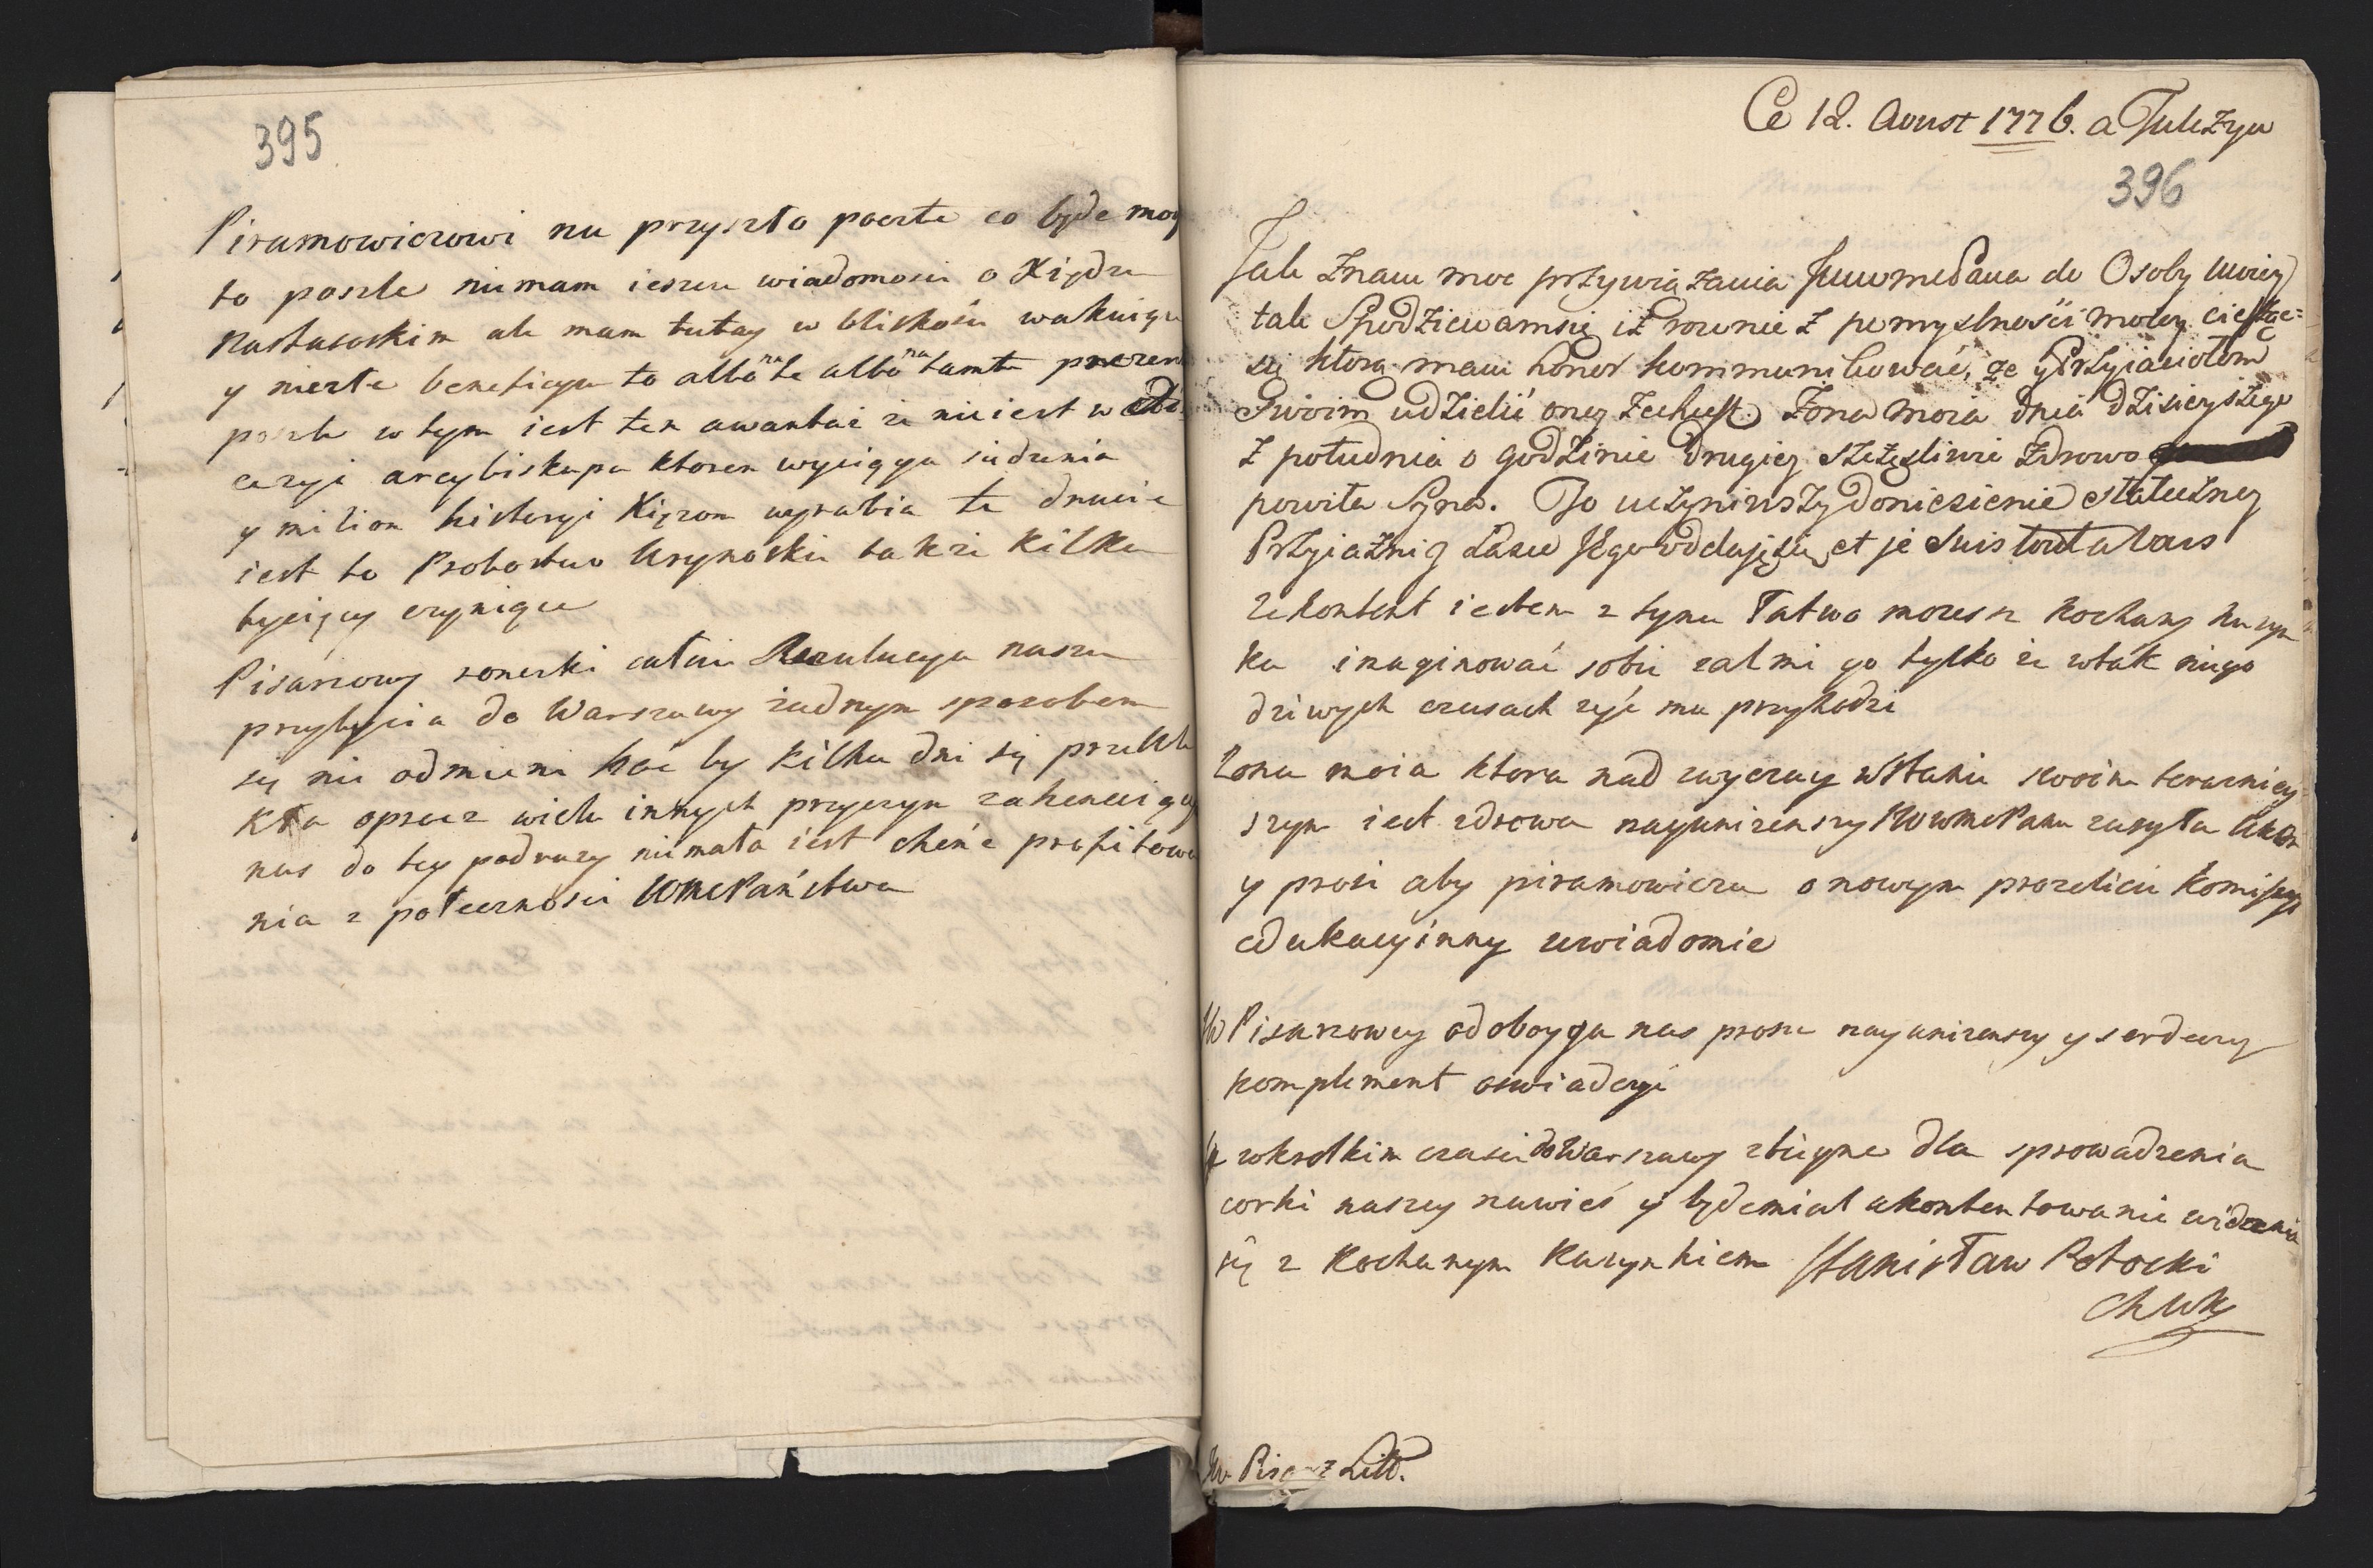 395
Piramowiczowi na przyszło poczte co będe mog
to poszle nimam ieszcze wiadomosci o Xiędzu
ale mam tutay w bliskosci wakuiące
y nierte beneficya to albo na te albo na tamte
poszle w tym iest ten awantaż że nie iest w
cezyi arcybiskupa ktoren wyciąga siedzenia
y milion historyi Xięzom wyrabia te drugie
iest to Probostwo także kilka
tysięcy czyniące
Pisarzowy rączki całuie Rezulucya nasza
przybycia do Warszawy żadnym sposobem
się nie odmieni hoć by kilka dni się przewle
kła oprucz wielu innych przyczyn zahencaiący
nas do tey podruzy niemała iest chęńc profitowa
nia z społecznosci WMcPaństwa
Ce 12. Aoust 1776. a Tulczyn
396
Jak znam moc przywiązania JwwmcPana do Osoby moiey
tak Spodziewamsię iż rownie z pomyslności moiey cieszyc=
się ktorą mam honor kommunikować, że y Przyiaciołom
Swoim udzielić oney zechcesz. Żona moia dnia dzisieyszego
z południa o godzinie drugiey szczęsliwie zdrowo
powiła Syna. To uczyniwszy doniesienie stateczney
Przyiazni y Łasce Jego oddaję się, et je suis tout a vous
że kontent iestem z tymu łatwo morzesz kochany kuzyn
ku imaginować sobie żal mi go tylko że w tak niego
dziwych czasach żyć mu przyhodzi
Żona moia ktora nad zwyczay w stanie swoim teraźniey
szym iest zdrowa nayunizenszy JWWMcPanu zasyła ukłon
y prosi aby piramowicza o nowym prozelicie Komissyi
edukacyinny uwiadomić
JW Pisarzowey od oboyga nas prosze nayunizenszy y serdeczny
komplement oswiadczyć
Ja w krotkim czasie do Warszawy zbiegne dla sprowadzenia
corki naszey na wieś y będe miał ukontentowanie widzenia
się z kochanym kuzynkiem Stanisław Potocki
ChWK
JW. Pisarz Litt.